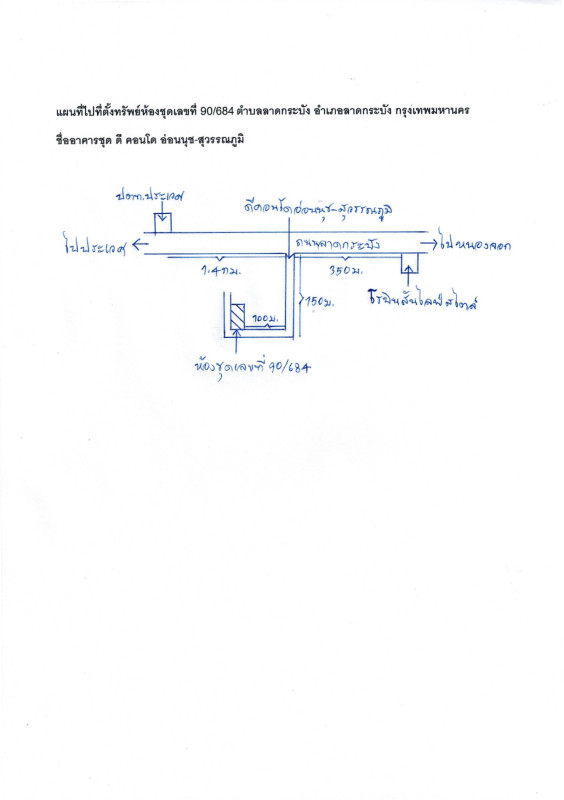 แผนที่ไปที่ตั้งทรัพย์ห้องชุดเลขที่ 90/684 ตำบลลาดกระบัง อำเภอลาดกระบัง กรุงเทพมหานคร
ชื่ออาคารชุด ดี คอนโด อ่อนนุช-สุวรรณภูมิ
ปตท.ประเวศ
ดีคอนโดอ่อนนุช-สุวรรณภูมิ
ไปประเวศ
ถนนลาดกระบัง
ไปหนองจอก
1.4 กม.
350 ม.
150 ม.
โรบินสันไลฟ์สไตล์
100 ม.
ห้องชุดเลขที่ 90/684